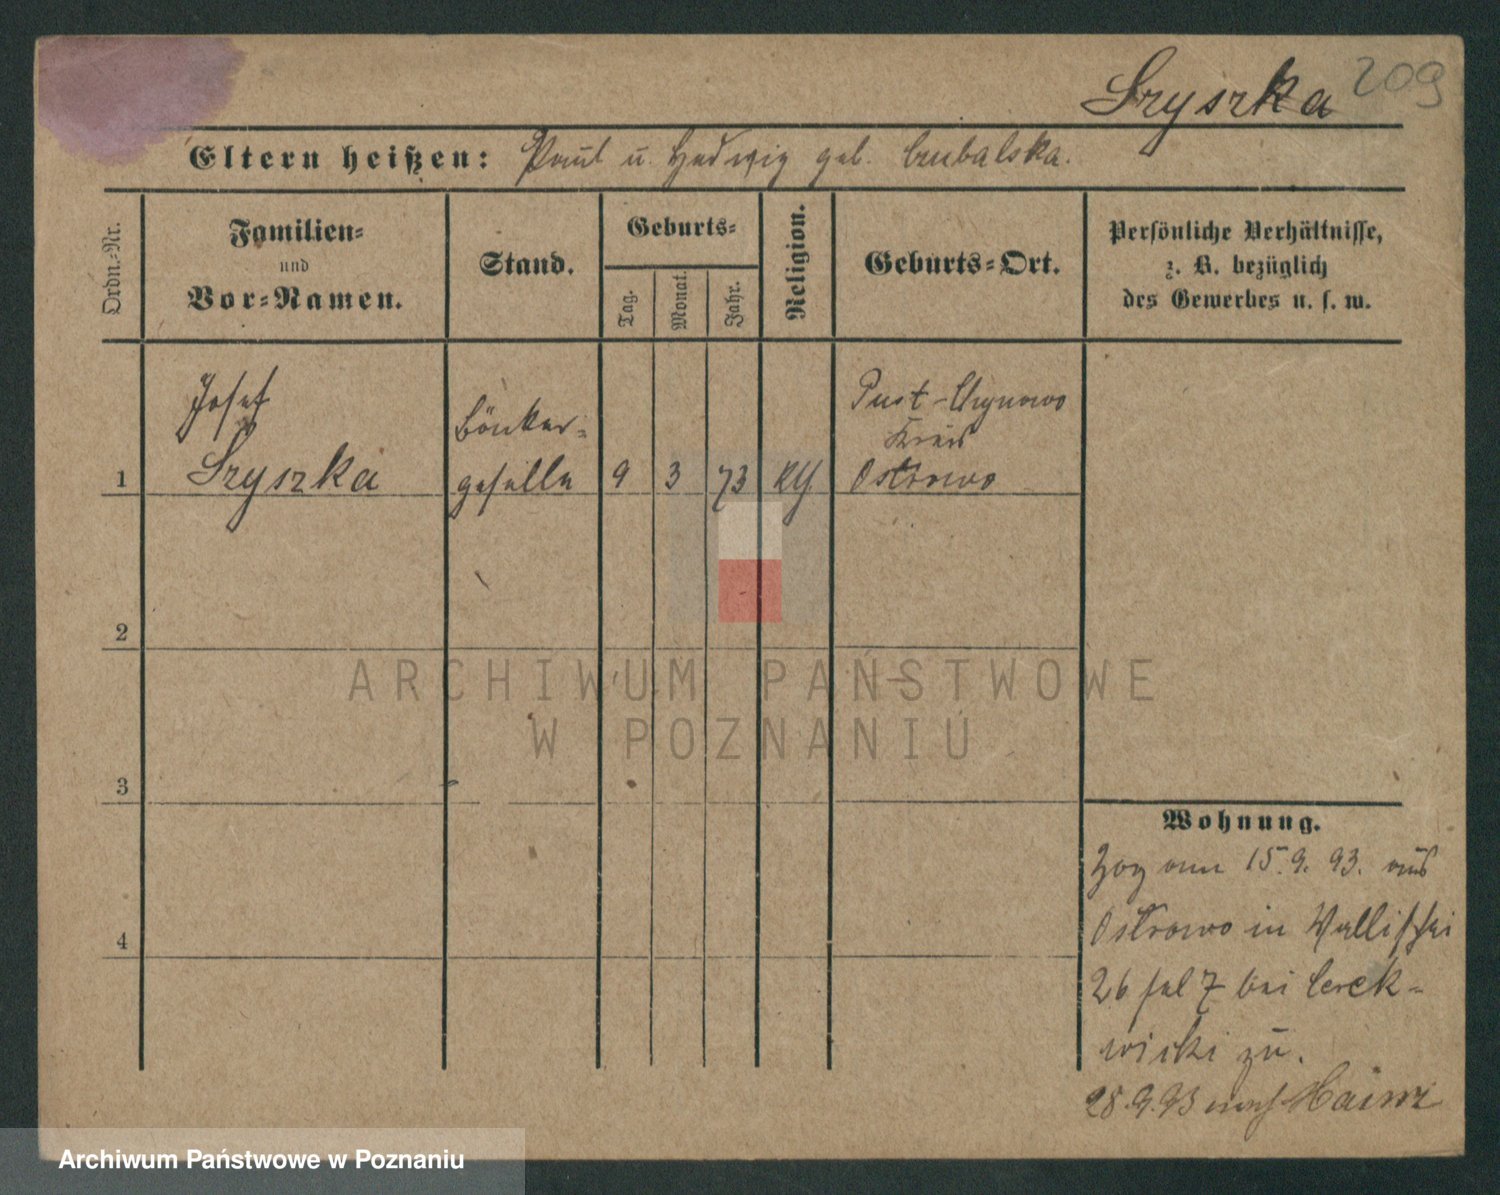 Szyszka 209
Eltern heißen: Paul u. Hedwig geb. Czubalska.
Ordn.-Nr.
Familien-
und
Vor-Namen.
Stand.
Geburts-
Tag.
Monat.
Jahr.
Religion.
Geburts-Ort.
Persönliche Verhältnisse,
z. B. bezüglich
des Gewerbes u. s. w.
Josef
Szyszka
geselle
1
9
3
73
Kreis
Ostrowo
2
3
4
Wohnung.
Zog am 15.9.93. aus
Ostrowo in Wallischei
26 bei Cerek-
wicki zu.
28.9.93 nach
ARCHIWUM PAŃSTWOWE
W POZNANIU
Archiwum Państwowe w Poznaniu